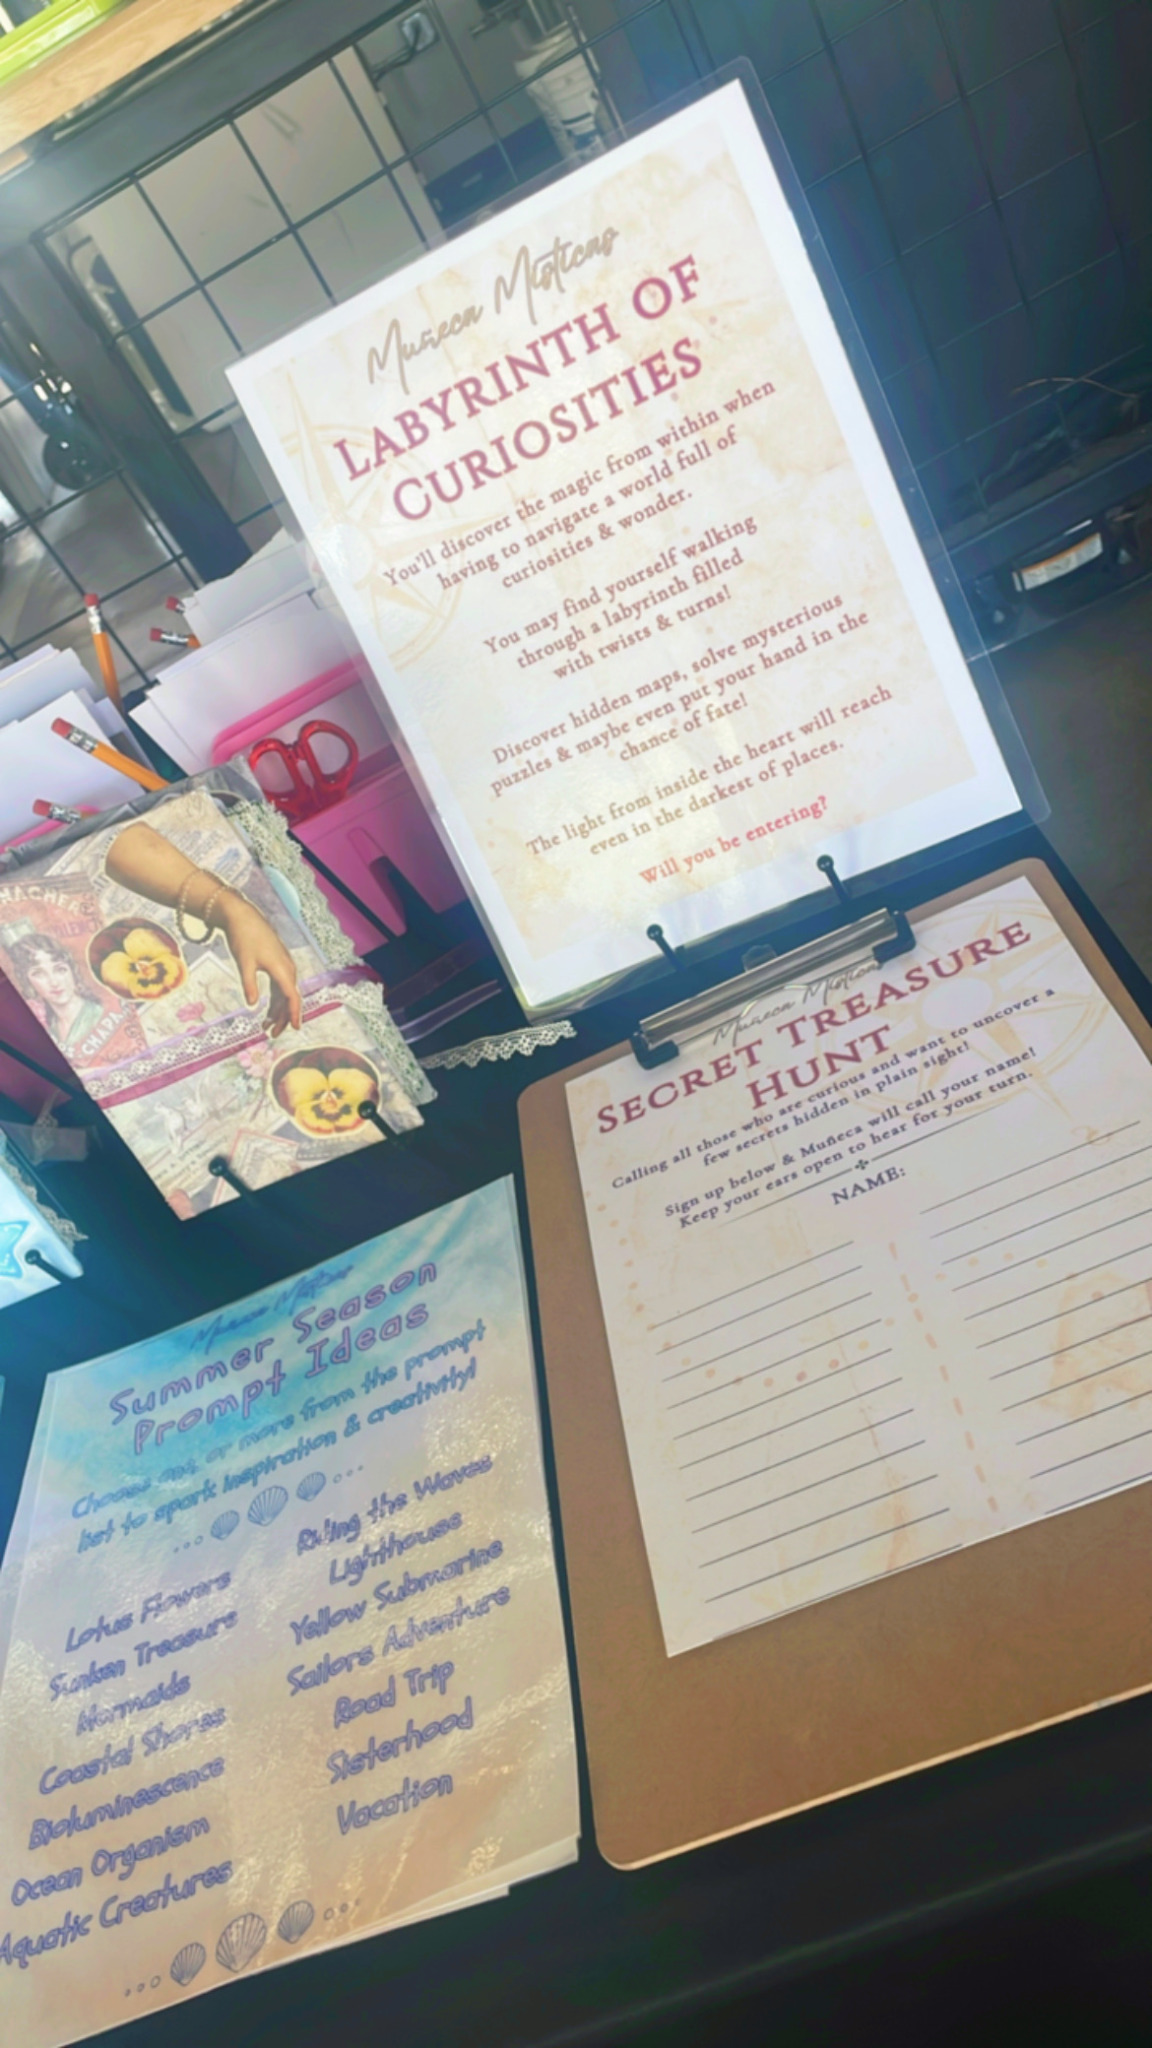 Muñeca Místicas
LABYRINTH OF
CURIOSITIES
You'll discover the magic from within when
having to navigate a world full of
curiosities & wonder.
You may find yourself walking
through a labyrinth filled
with twists & turns!
Discover hidden maps, solve mysterious
puzzles & maybe even put your hand in the
chance of fate!
The light from inside the heart will reach
even in the darkest of places.
Will you be entering?
Muñeca Místicas
SECRET TREASURE
HUNT
Calling all those who are curious and want to uncover a
few secrets hidden in plain sight!
Sign up below & Muñeca will call your name!
Keep your ears open to hear for your turn.
NAME:
Summer Season
Prompt Ideas
Choose one or more from the prompt
list to spark inspiration & creativity!
Lotus Flowers
Sunken Treasure
Mermaids
Coastal Shores
Bioluminescence
Ocean Organism
Aquatic Creatures
Riding the Waves
Lighthouse
Yellow Submarine
Sailors Adventure
Road Trip
Sisterhood
Vacation